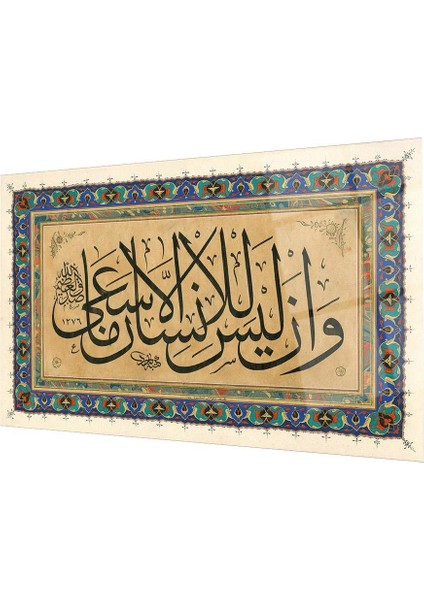 وَاَنْ لَيْسَ لِلْاِنْسَانِ اِلَّا مَا سَعٰى
صدق الله العظيم
١٢٧٦